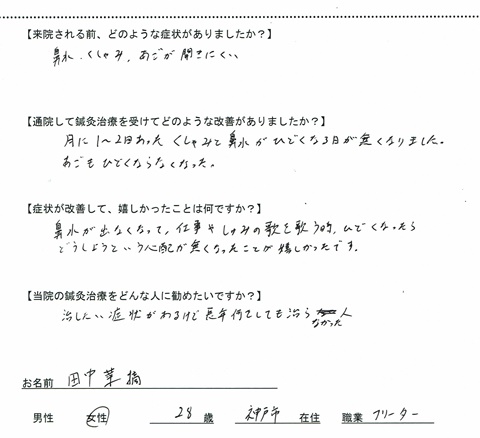 【来院される前、どのような症状がありましたか？】
鼻水、くしゃみ、あごが開きにくい
【通院して鍼灸治療を受けてどのような改善がありましたか？】
月に1～2日あった くしゃみと鼻水がひどくなる日が無くなりました。
あごもひどくならなくなった。
【症状が改善して、嬉しかったことは何ですか？】
鼻水が出なくなって、仕事やしゅみの歌を歌う時、ひどくなったら
どうしようという心配が無くなったことが嬉しかったです。
【当院の鍼灸治療をどんな人に勧めたいですか？】
治したい症状があるけど長年何をしても治らなかった人
お名前 田中菜摘
男性 女性 28 歳 神戸市 在住 職業 フリーター